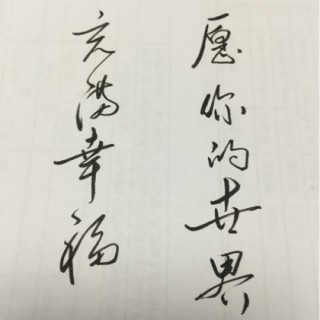 愿你的世界
充满幸福